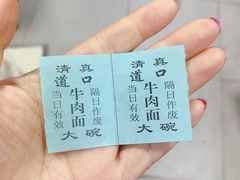 清真
道口
牛肉面
当日有效
隔日作废
大碗
清真
道口
牛肉面
当日有效
隔日作废
大碗